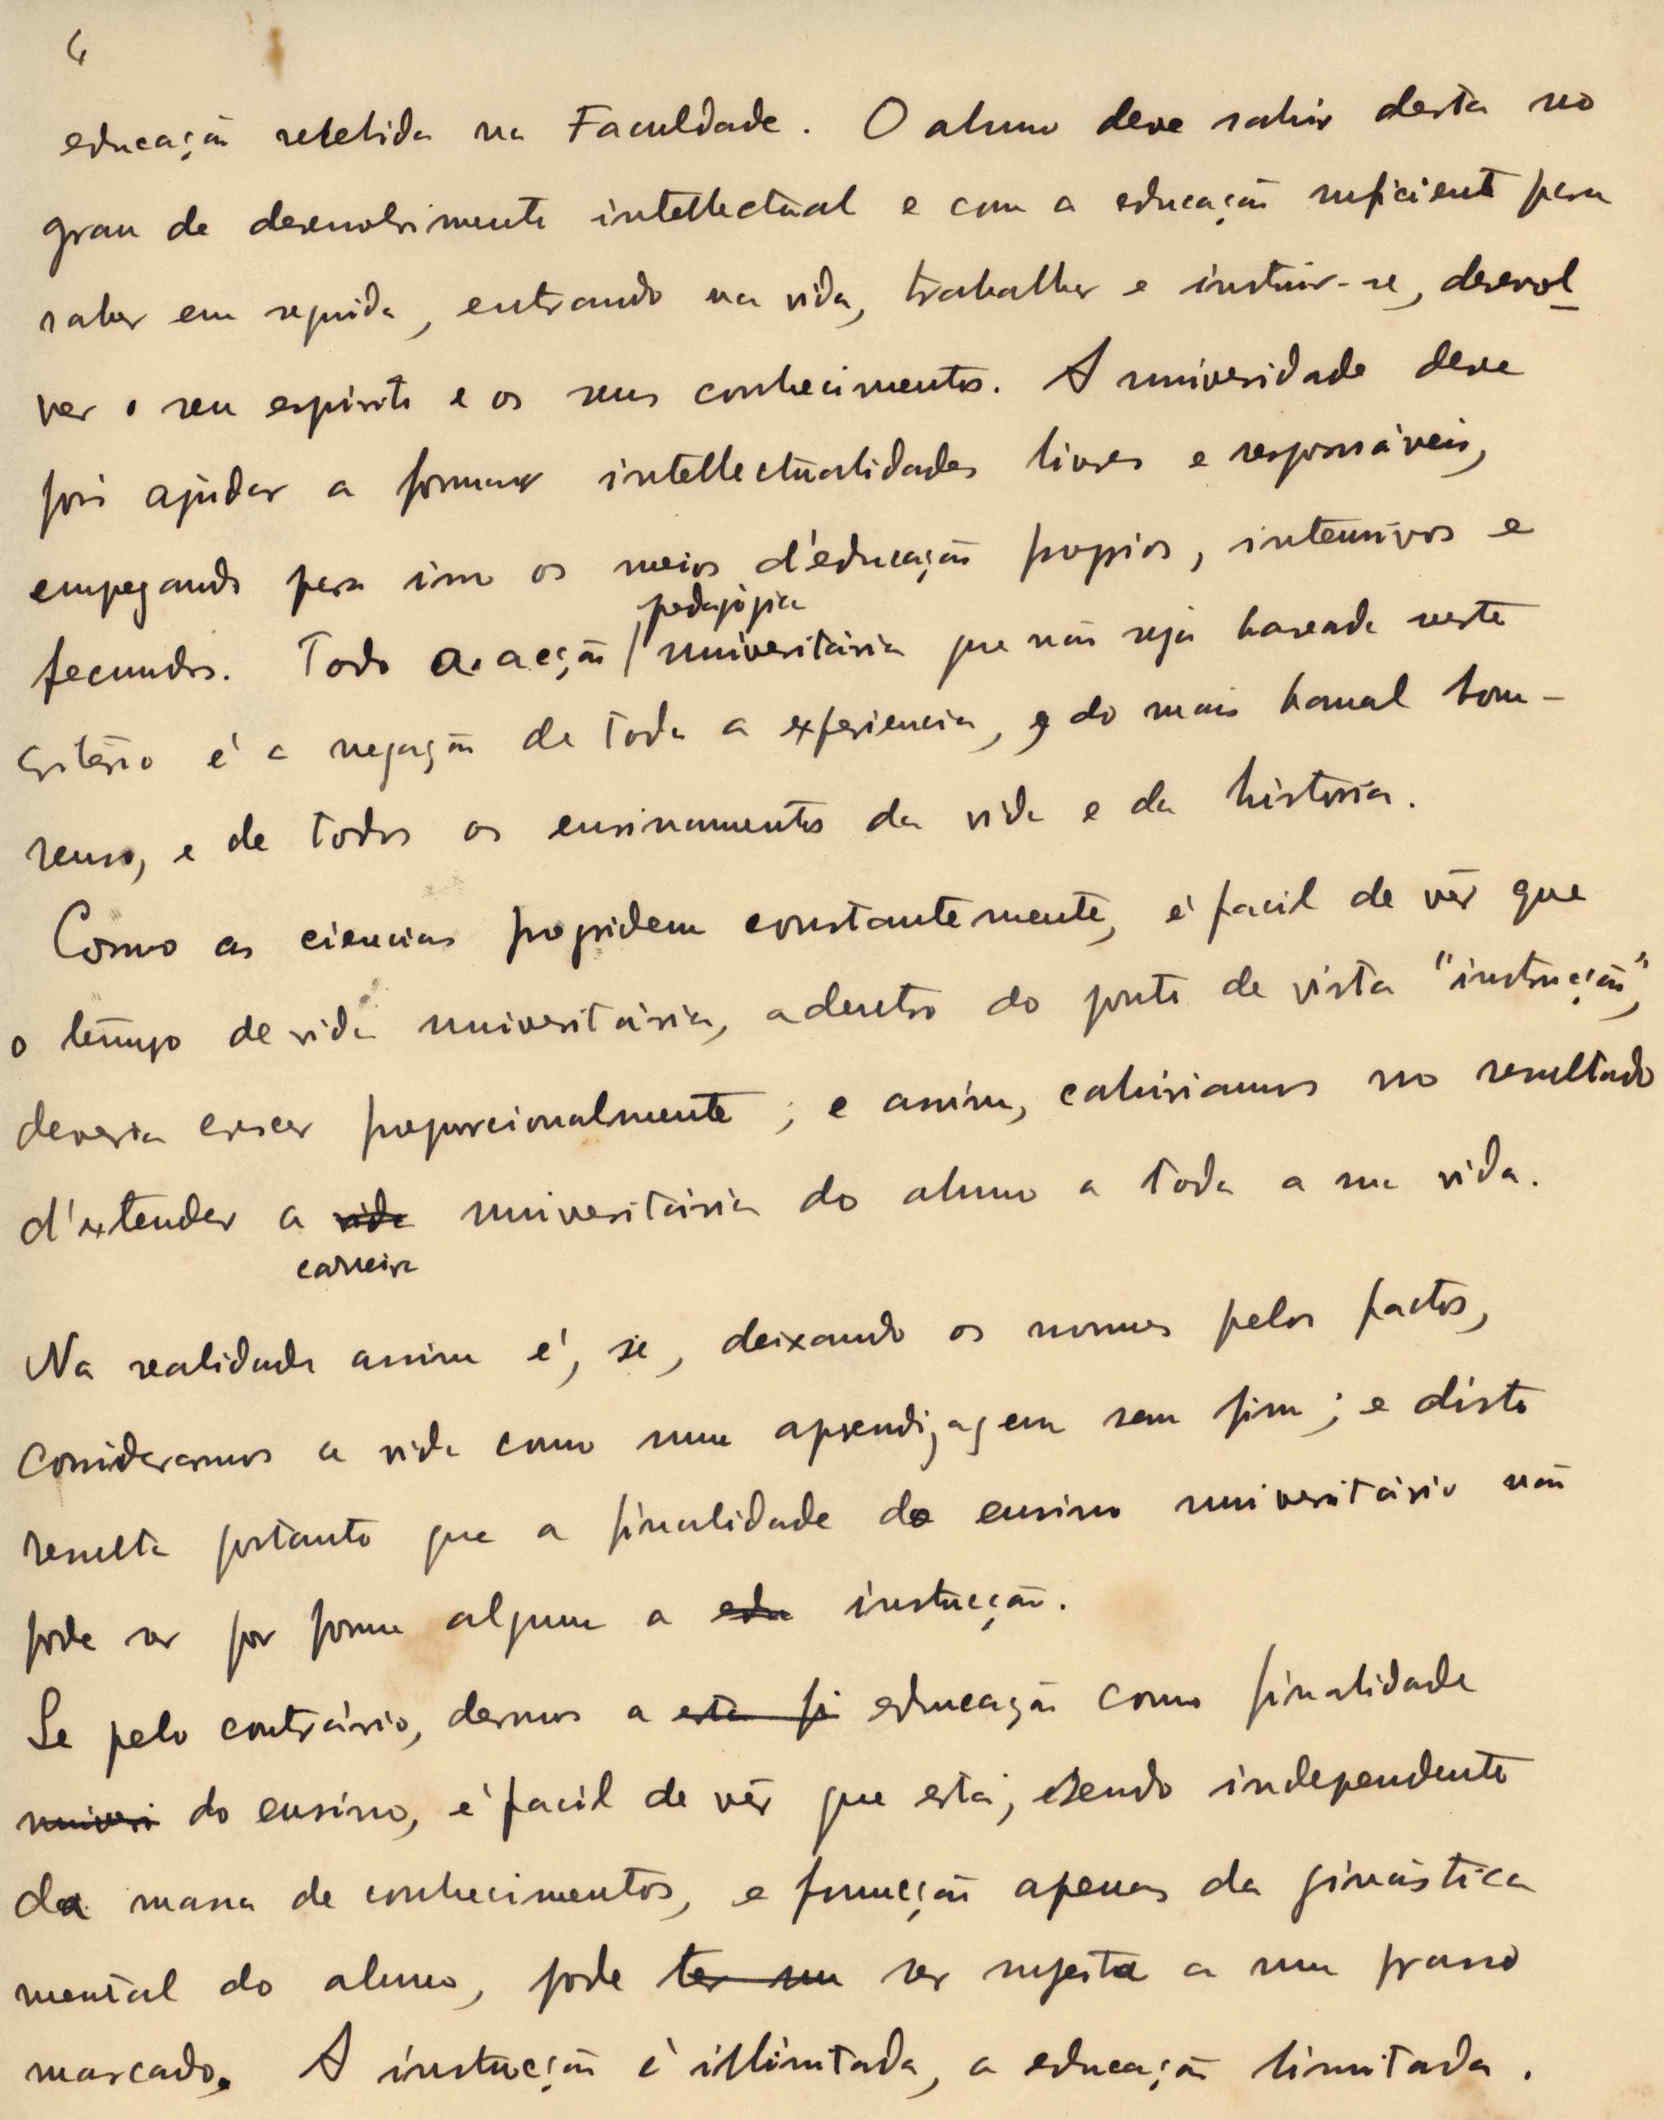 4
educação recebida na Faculdade. O aluno deve sahir desta no
grau de desenvolvimento intellectual e com a educação suficiente para
saber em seguida, entrando na vida, trabalhar e instruir-se, desenvol-
ver o seu espirito e os seus conhecimentos. A universidade deve
pois ajudar a formar intellectualidades livres e responsáveis,
empregando para isso os meios d'educação proprios, intensivos e
pedagógica
fecundos. Toda a acção / universitária que não seja baseada neste
critério é a negação de toda a experiencia, e do mais banal bom-
senso, e de todos os ensinamentos da vida e da historia.
Como as ciencias progridem constantemente, é facil de vêr que
o tempo de vida universitária, adentro do ponto de vista "instrucção",
deveria crescer proporcionalmente; e assim, cahiriamos no resultado
d'extender a vida universitária do aluno a toda a sua vida.
carreira
Na realidade assim é, se, deixando os nomes pelos factos,
considerarmos a vida como uma aprendizagem sem fim; e disto
resulta portanto que a finalidade do ensino universitário não
pode ser por forma alguma a edu instrucção.
Se pelo contrário, dermos a esta fi educação como finalidade
universi do ensino, é facil de vêr que esta, sendo independente
da massa de conhecimentos, e funcção apenas da ginástica
mental do aluno, pode ter um ser sujeita a um praso
marcado. A instrucção é illimitada, a educação limitada.